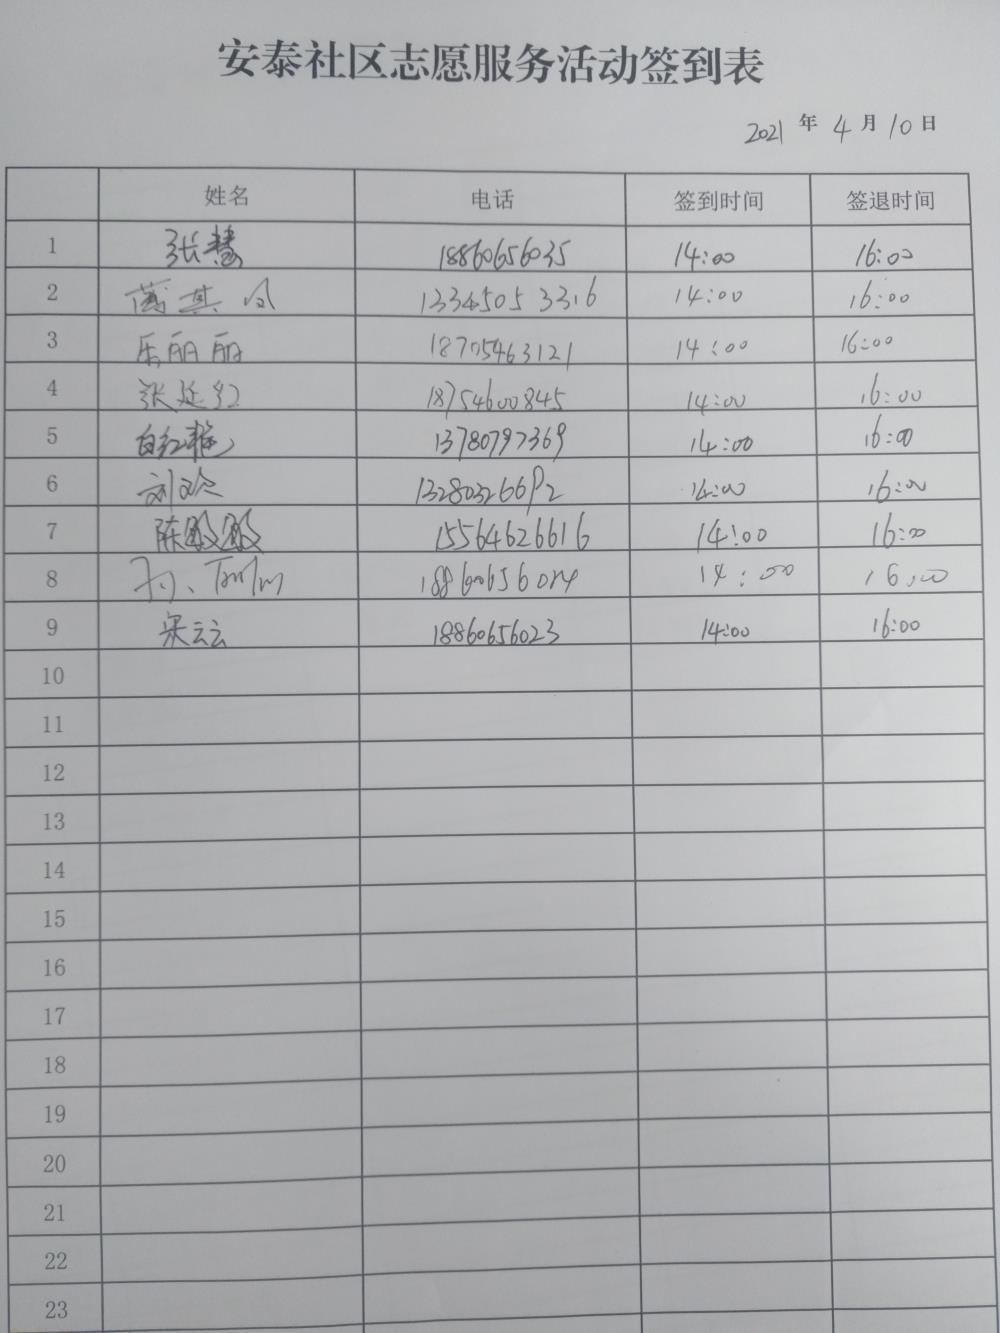 安泰社区志愿服务活动签到表
2021 年 4 月 10 日
姓名 电话 签到时间 签退时间
1 张慧 18860656035 14:00 16:00
2 其凤 13345053316 14:00 16:00
3 乐丽丽 18705463121 14:00 16:00
4 张延红 18754600845 14:00 16:00
5 白红艳 13780797369 14:00 16:00
6 刘欢 13280326692 14:00 16:00
7 陈殿殿 15564626616 14:00 16:00
8 14:00 16:00
9 宋云云 18860656023 14:00 16:00
10
11
12
13
14
15
16
17
18
19
20
21
22
23